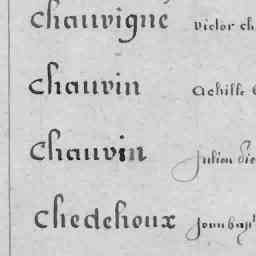 chauvigne victor ch
chauvin achille
chauvin julien
chedehoux